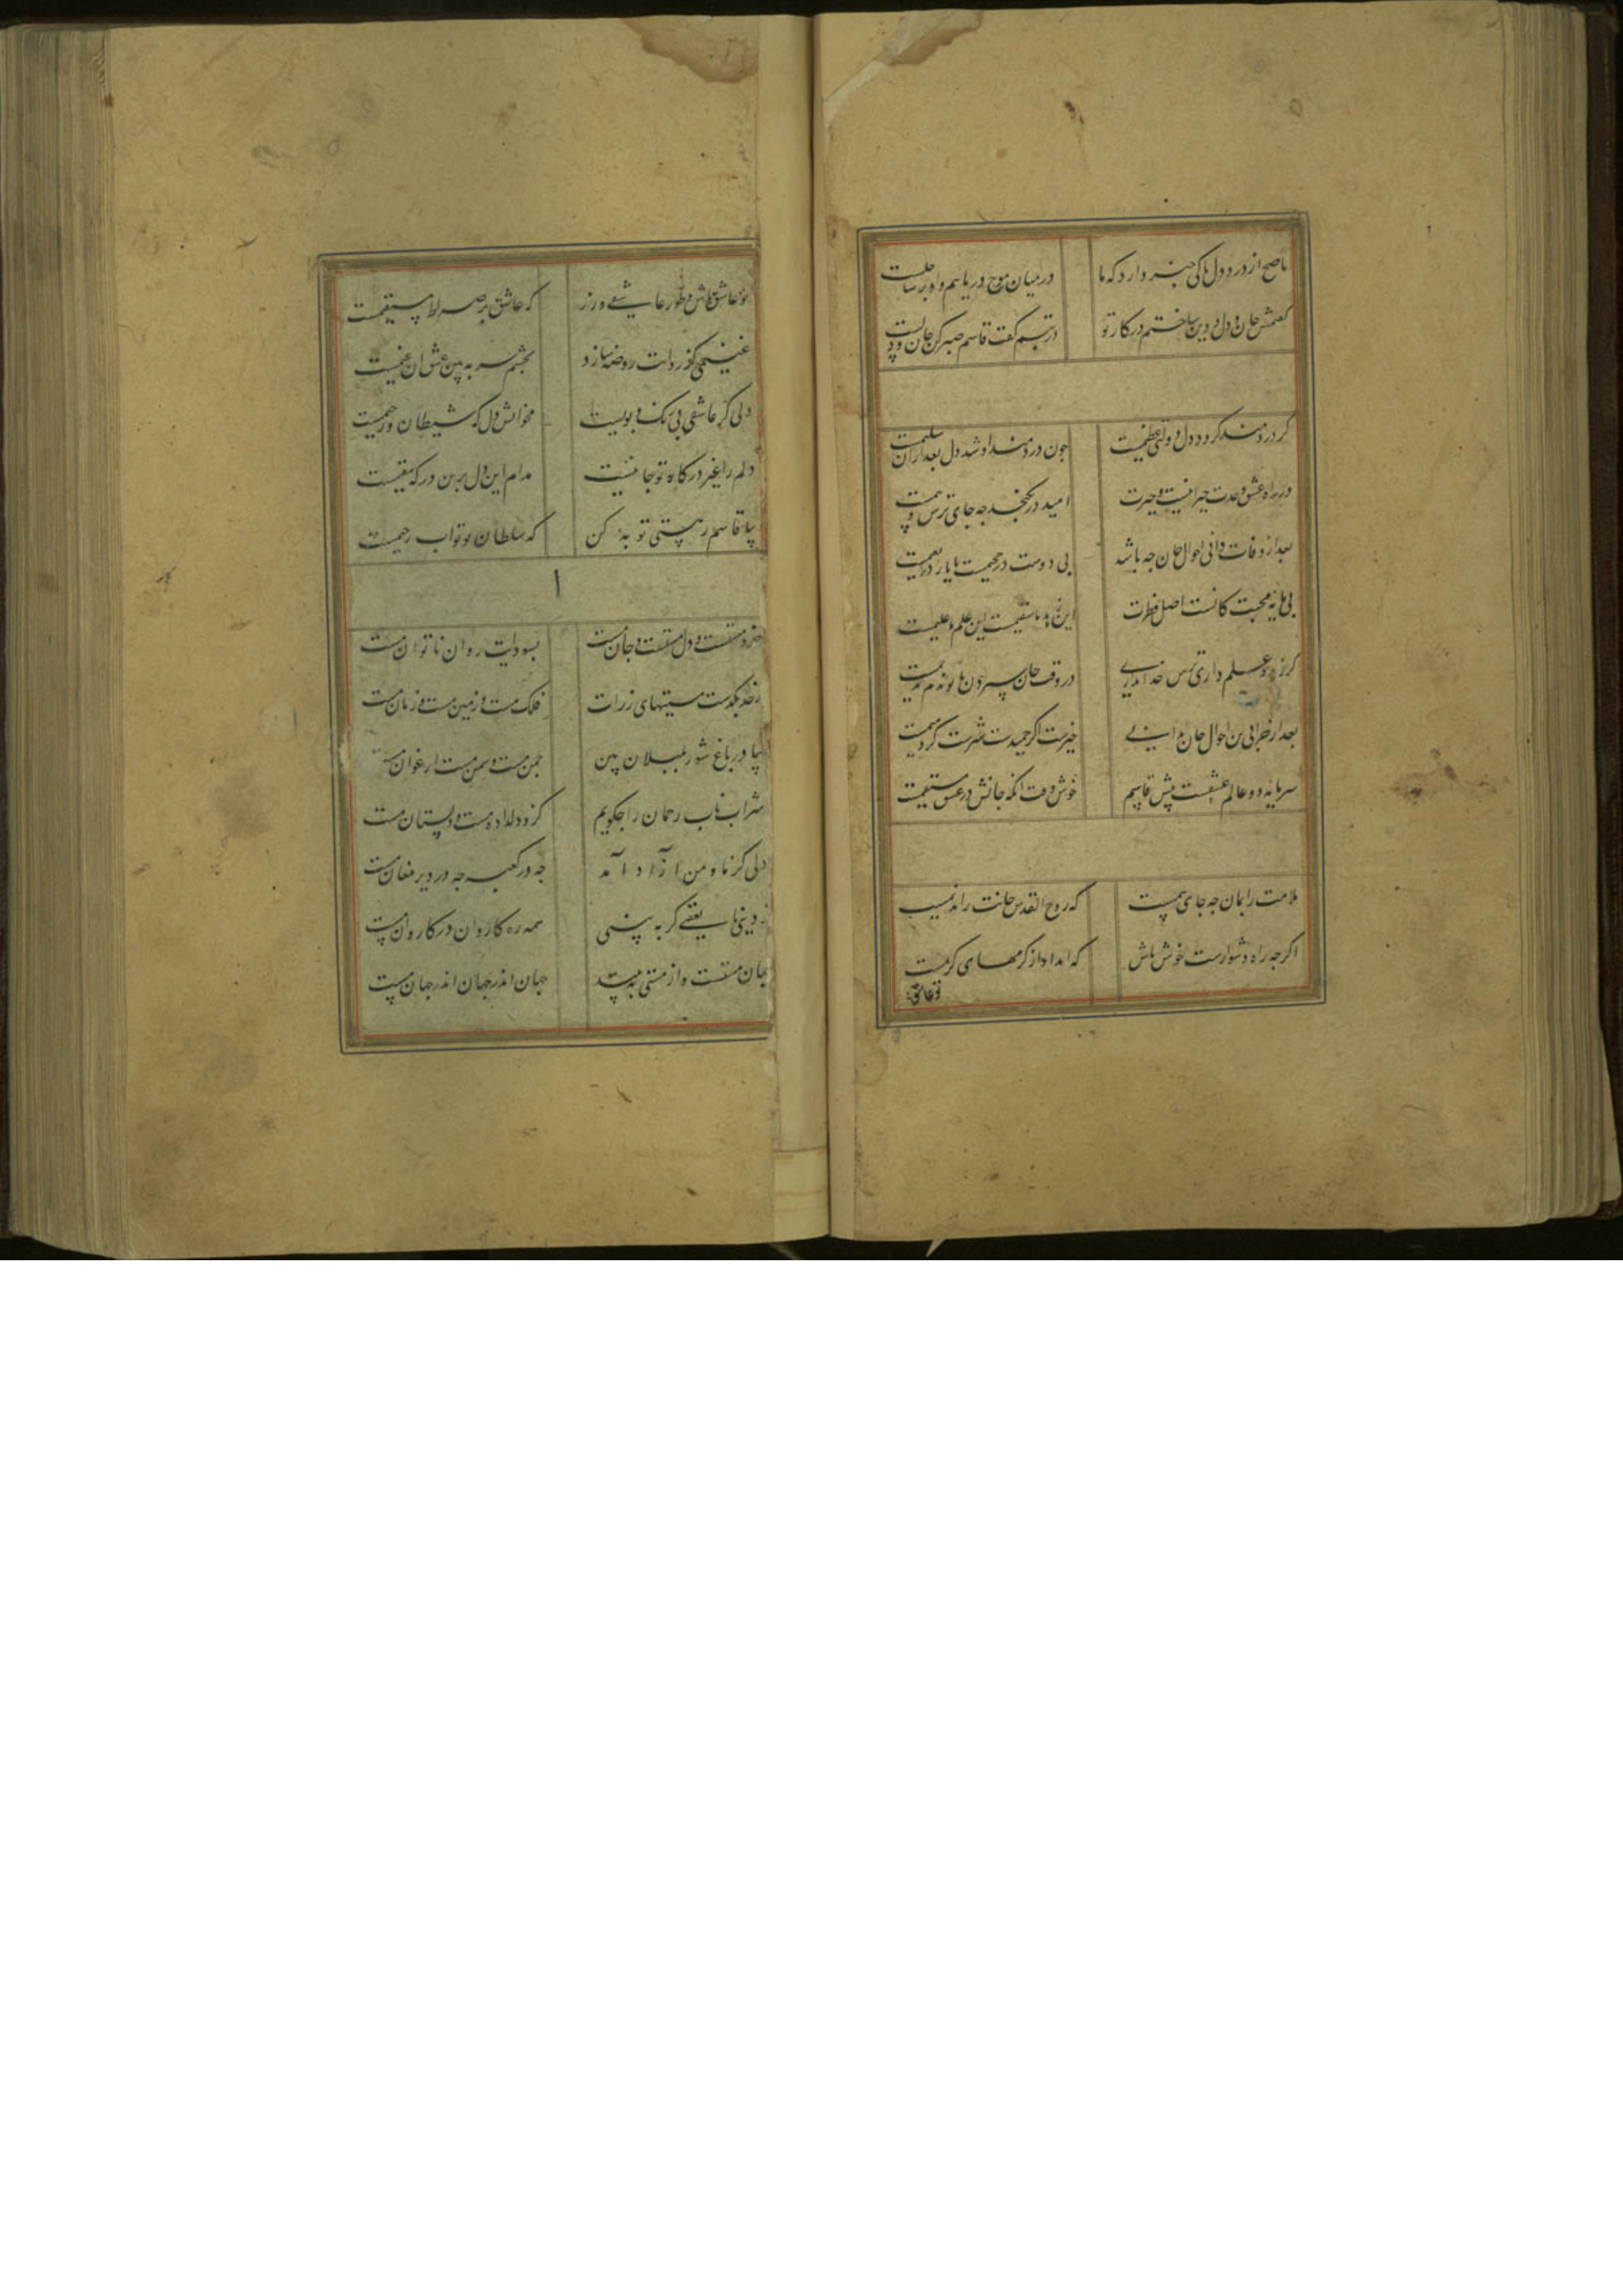 ناصح از درد دل ما کی خبر دارد که ما
در میان موج دریاییم و او بر ساحلست
گفتمش جان و دل و دین باختم در کار تو
در تبسم گفت قاسم صبر کن جان و دلست
گر دردمند گردد دل دولتی عظیمست
چون دردمند او شد دل بعد از آن سلیمست
در راه عشق وحدت حیرانیست و حیرت
امید در نگنجد چه جای ترس و بیمست
بعد از وفات دانی احوال جان چه باشد
بی دوست در جحیمست با یار در نعیمست
بی مایه محبت کانست اصل فطرت
این زهد ناسقیمست این علم علیمست
گر زهد و علم داری ترس خدا نداری
در وقت جان سپردن با تو ندم ندیمست
بعد از خرابی تن احوال جان بدانی
خیرست اگر حمیدست شرست گر دمیمست
سرمایه دو عالم عشقست پیش قاسم
خوش وقت آنکه جانش در عشق مستقیمست
ملامت را بمان چه جای بیمست
که روح القدس جانت را ندیمست
اگر چه راه دشوارست خوش باش
که امداد از کرمهای کریمست
تو عاشق
تو عاشق باش و طور عاشقی ورز
که عاشق بر صراط مستقیمست
غنیمی کو روانت روضه سازد
بچشم سر ببین عشق آن غنیمست
دلی کز عاشقی بی رنگ و بویست
مخوانش دل که شیطان رجیمست
دلم را غیر درگاه تو جا نیست
مدام این دل برین درگه مقیمست
بیا قاسم ز هستی توبه کن
که سلطان تو تواب رحیمست
خرد مستست و دل مستست و جان مست
بسودایت روان ناتوان مست
ز حد بگذشت مستیهای ذرات
فلک مست و زمین مست و زمان مست
بیا در باغ شور بلبلان بین
چمن مست و سمن مست ارغوان مست
شراب ناب رحمان را چگویم
کزو دلداده مست و دلستان مست
دلی کز ما و من آزاد آمد
چه در کعبه چه در دیر مغان مست
یقین گر به بینی
همه ره کاروان در کاروان مست
جهان مستست و از مستی
جهان اندر جهان اندر جهان مست